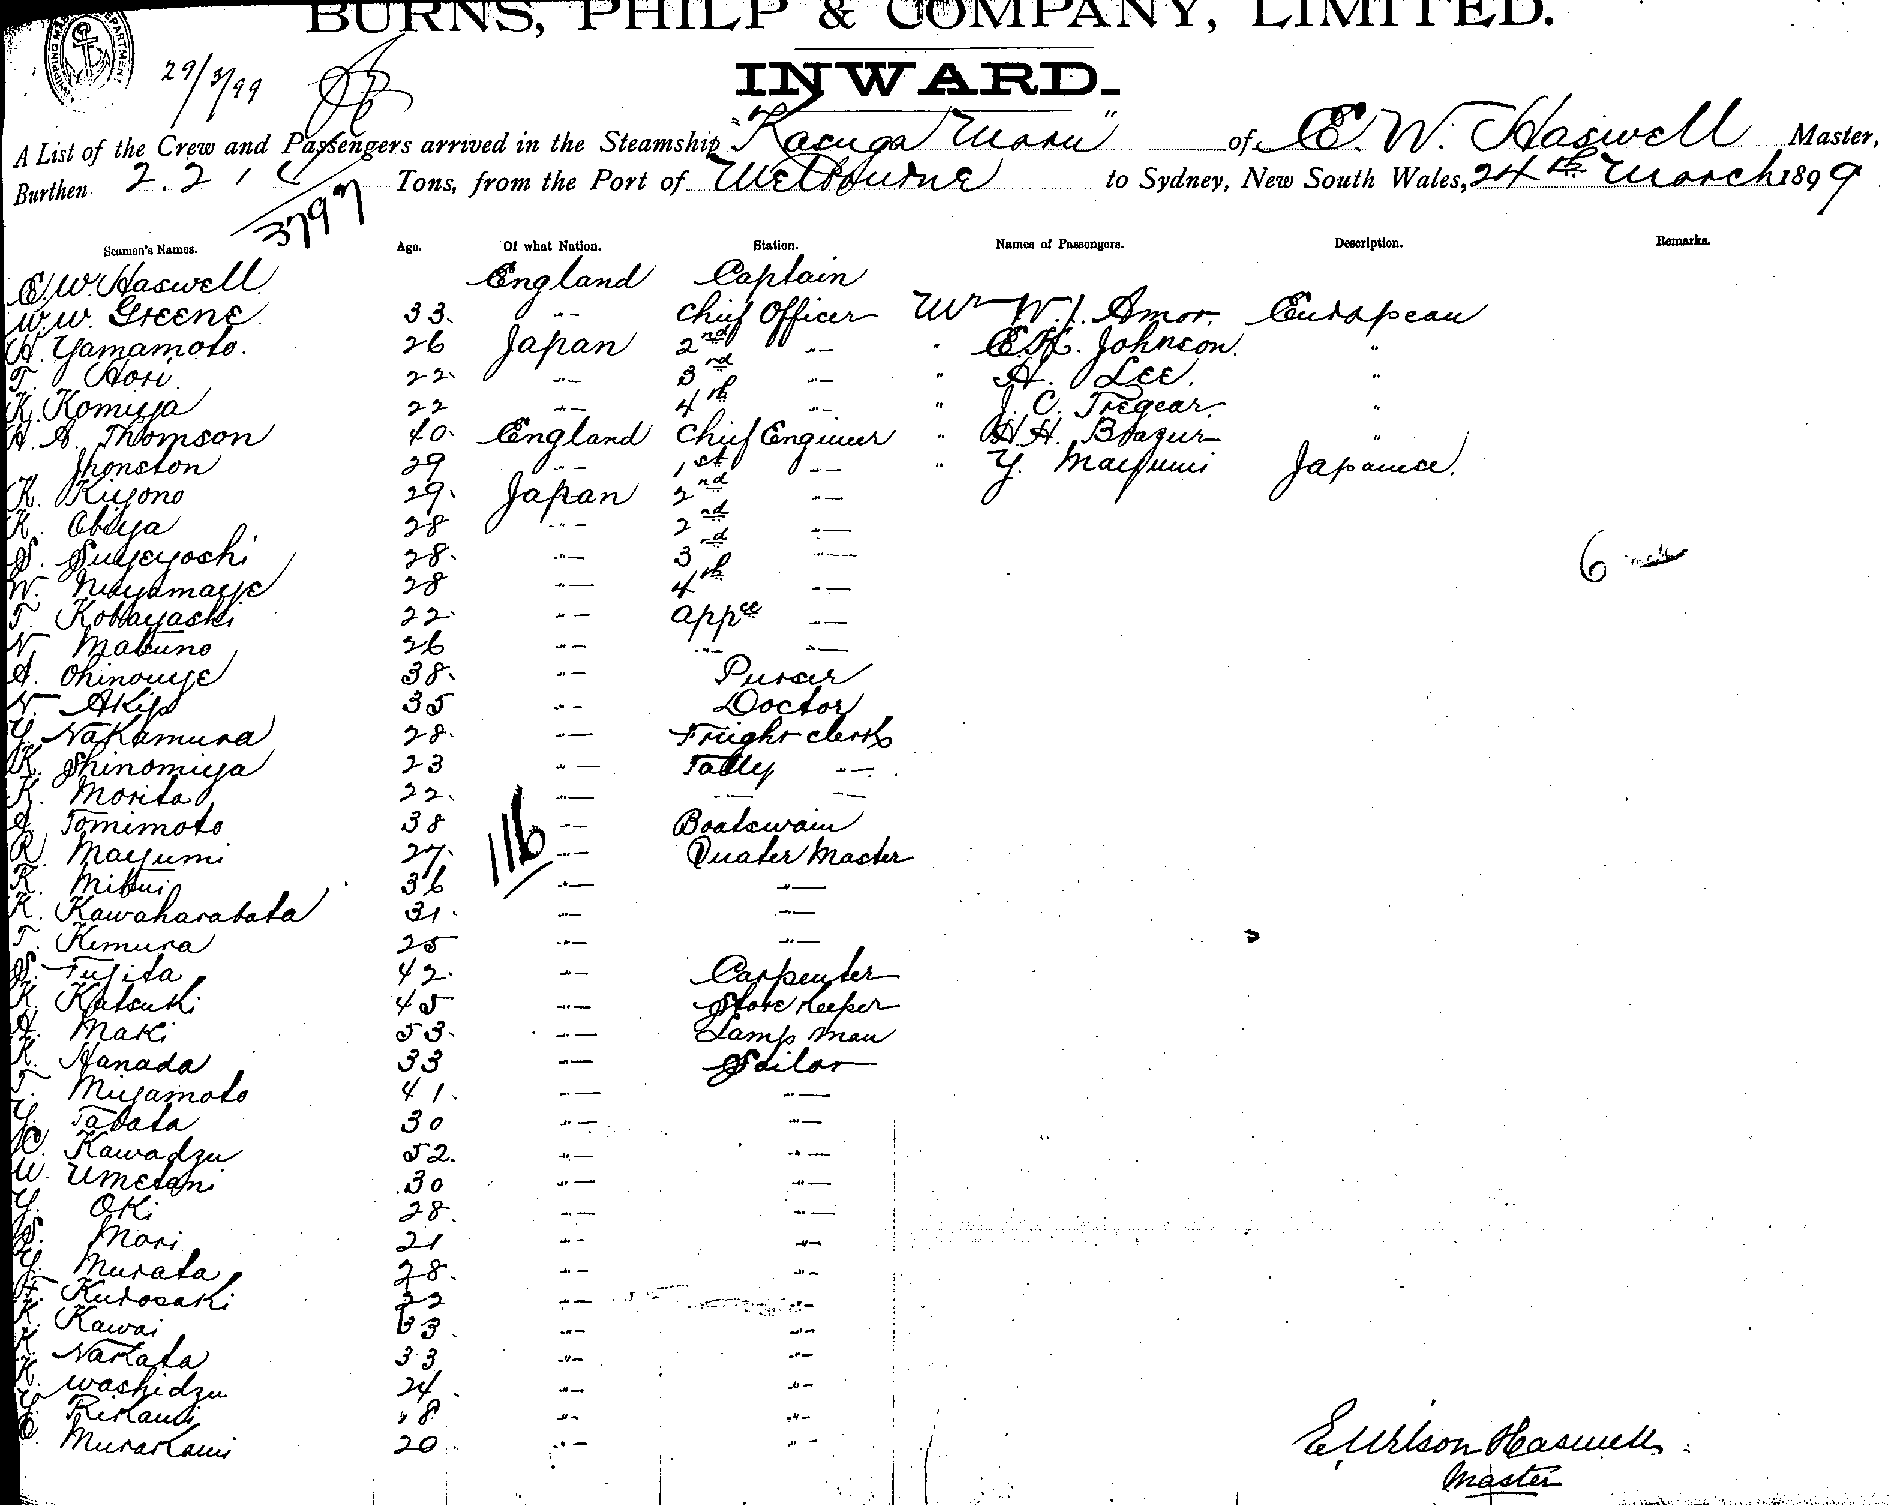 BURNS, PHILP & COMPANY, LIMITED.
29/3/99
INWARD.
A List of the Crew and Passengers arrived in the Steamship "Kasuga Maru" of E. W. Haswell Master,
Burthen 2.21 Tons, from the Port of Melbourne to Sydney, New South Wales, 24th March 1899
3797
Seamen's Names. Age. Of what Nation. Station. Names of Passengers. Description. Remarks.
E. W. Haswell England Captain
W. W. Greene 33. " Chief Officer Mr W. J. Amor. European
H. Yamamoto. 26 Japan 2nd " " E. K. Johnson. "
T. Hori 22. " 3rd " " H. Lee. "
K. Komiya 22 " 4th " " J. C. Tregear. "
H. A. Thomson 40. England Chief Engineer " H. H. "
Jhonston 29 " 1st " " Y. Mayumi Japanese.
K. Kiyono 29. Japan 2nd "
K. Obiya 28 " 2nd "
S. Suyeyoshi 28. " 3rd "
W. 28 " 4th "
T. Kobayashi 22. " Appce "
N. Makuno 26 " " "
A. Ohinouye 38. " Purser
N. 35 " Doctor
Y. Nakamura 28. " Freight clerk
K. Shinomiya 23 " Tally "
K. Morita 22. " " "
Tomimoto 38 " Boatswain
116
R. Mayumi 27. " Quater Master
K. Mitsui 36 " "
K. Kawaharabata 31. " "
T. Kimura 25 " "
S. Fujita 42. " Carpenter
K. Katsuki 45 " Store keeper
H. Maki 53. " Lamp man
K. Hanada 33 " Sailor
T. Miyamoto 41. " "
Y. Tabata 30 " "
C. Kawadzu 52. " "
U. Umetani 30 " "
Y. Oki 28. " "
S. Mori 21 " "
Y. Murata 28. " "
Kurosaki 22 " "
K. Kawai 33. " "
K. Nakata 33 " "
K. Washidzu 24. " "
Rikami 18 " "
Murakami 20 " "
6
E Wilson Haswell
Master